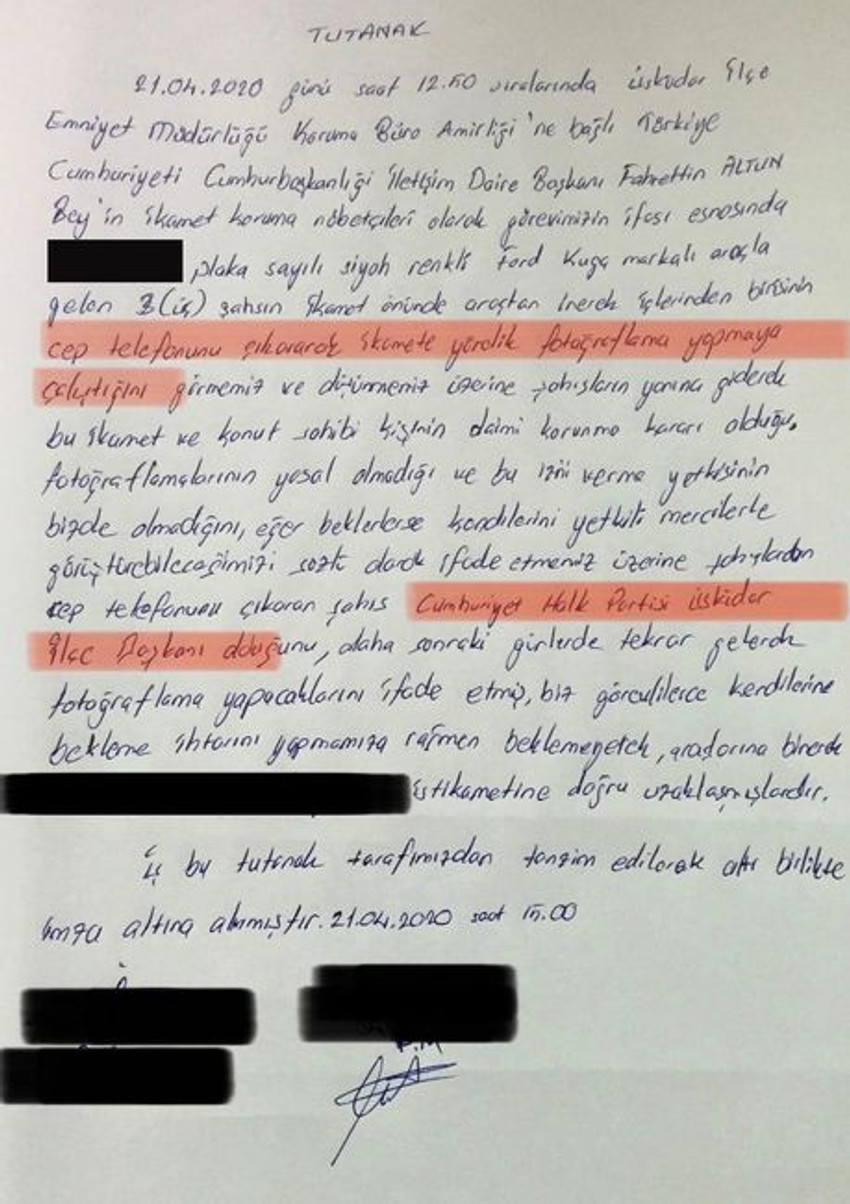 TUTANAK
21.04.2020 günü saat 12.50 sıralarında Üsküdar İlçe
Emniyet Müdürlüğü Koruma Büro Amirliği'ne bağlı Türkiye
Cumhuriyeti Cumhurbaşkanlığı İletişim Daire Başkanı Fahrettin ALTUN
Bey'in ikamet koruma nöbetçileri olarak görevimizin ifası esnasında
, plaka sayılı siyah renkli Ford Kuga markalı araçla
gelen 3 (üç) şahsın ikamet önünde araçtan inerek içlerinden birisinin
cep telefonunu çıkararak ikamete yönelik fotoğraflama yapmaya
çalıştığını görmemiz ve düşünmemiz üzerine şahısların yanına giderek
bu ikamet ve konut sahibi kişinin daimi korunma kararı olduğu,
fotoğraflamalarının yasal olmadığı ve bu izni verme yetkisinin
bizde olmadığını, eğer beklerlerse kendilerini yetkili mercilerle
görüştürebileceğimizi sözlü olarak ifade etmemiz üzerine şahıslardan
cep telefonunu çıkaran şahıs Cumhuriyet Halk Partisi Üsküdar
İlçe Başkanı olduğunu, daha sonraki günlerde tekrar gelerek
fotoğraflama yapacaklarını ifade etmiş, biz görevlilerce kendilerine
bekleme ihtarını yapmamıza rağmen beklemeyerek, araçlarına binerek
istikametine doğru uzaklaşmışlardır.
İş bu tutanak tarafımızdan tanzim edilerek altı birlikte
imza altına alınmıştır. 21.04.2020 saat 15.00
P.M